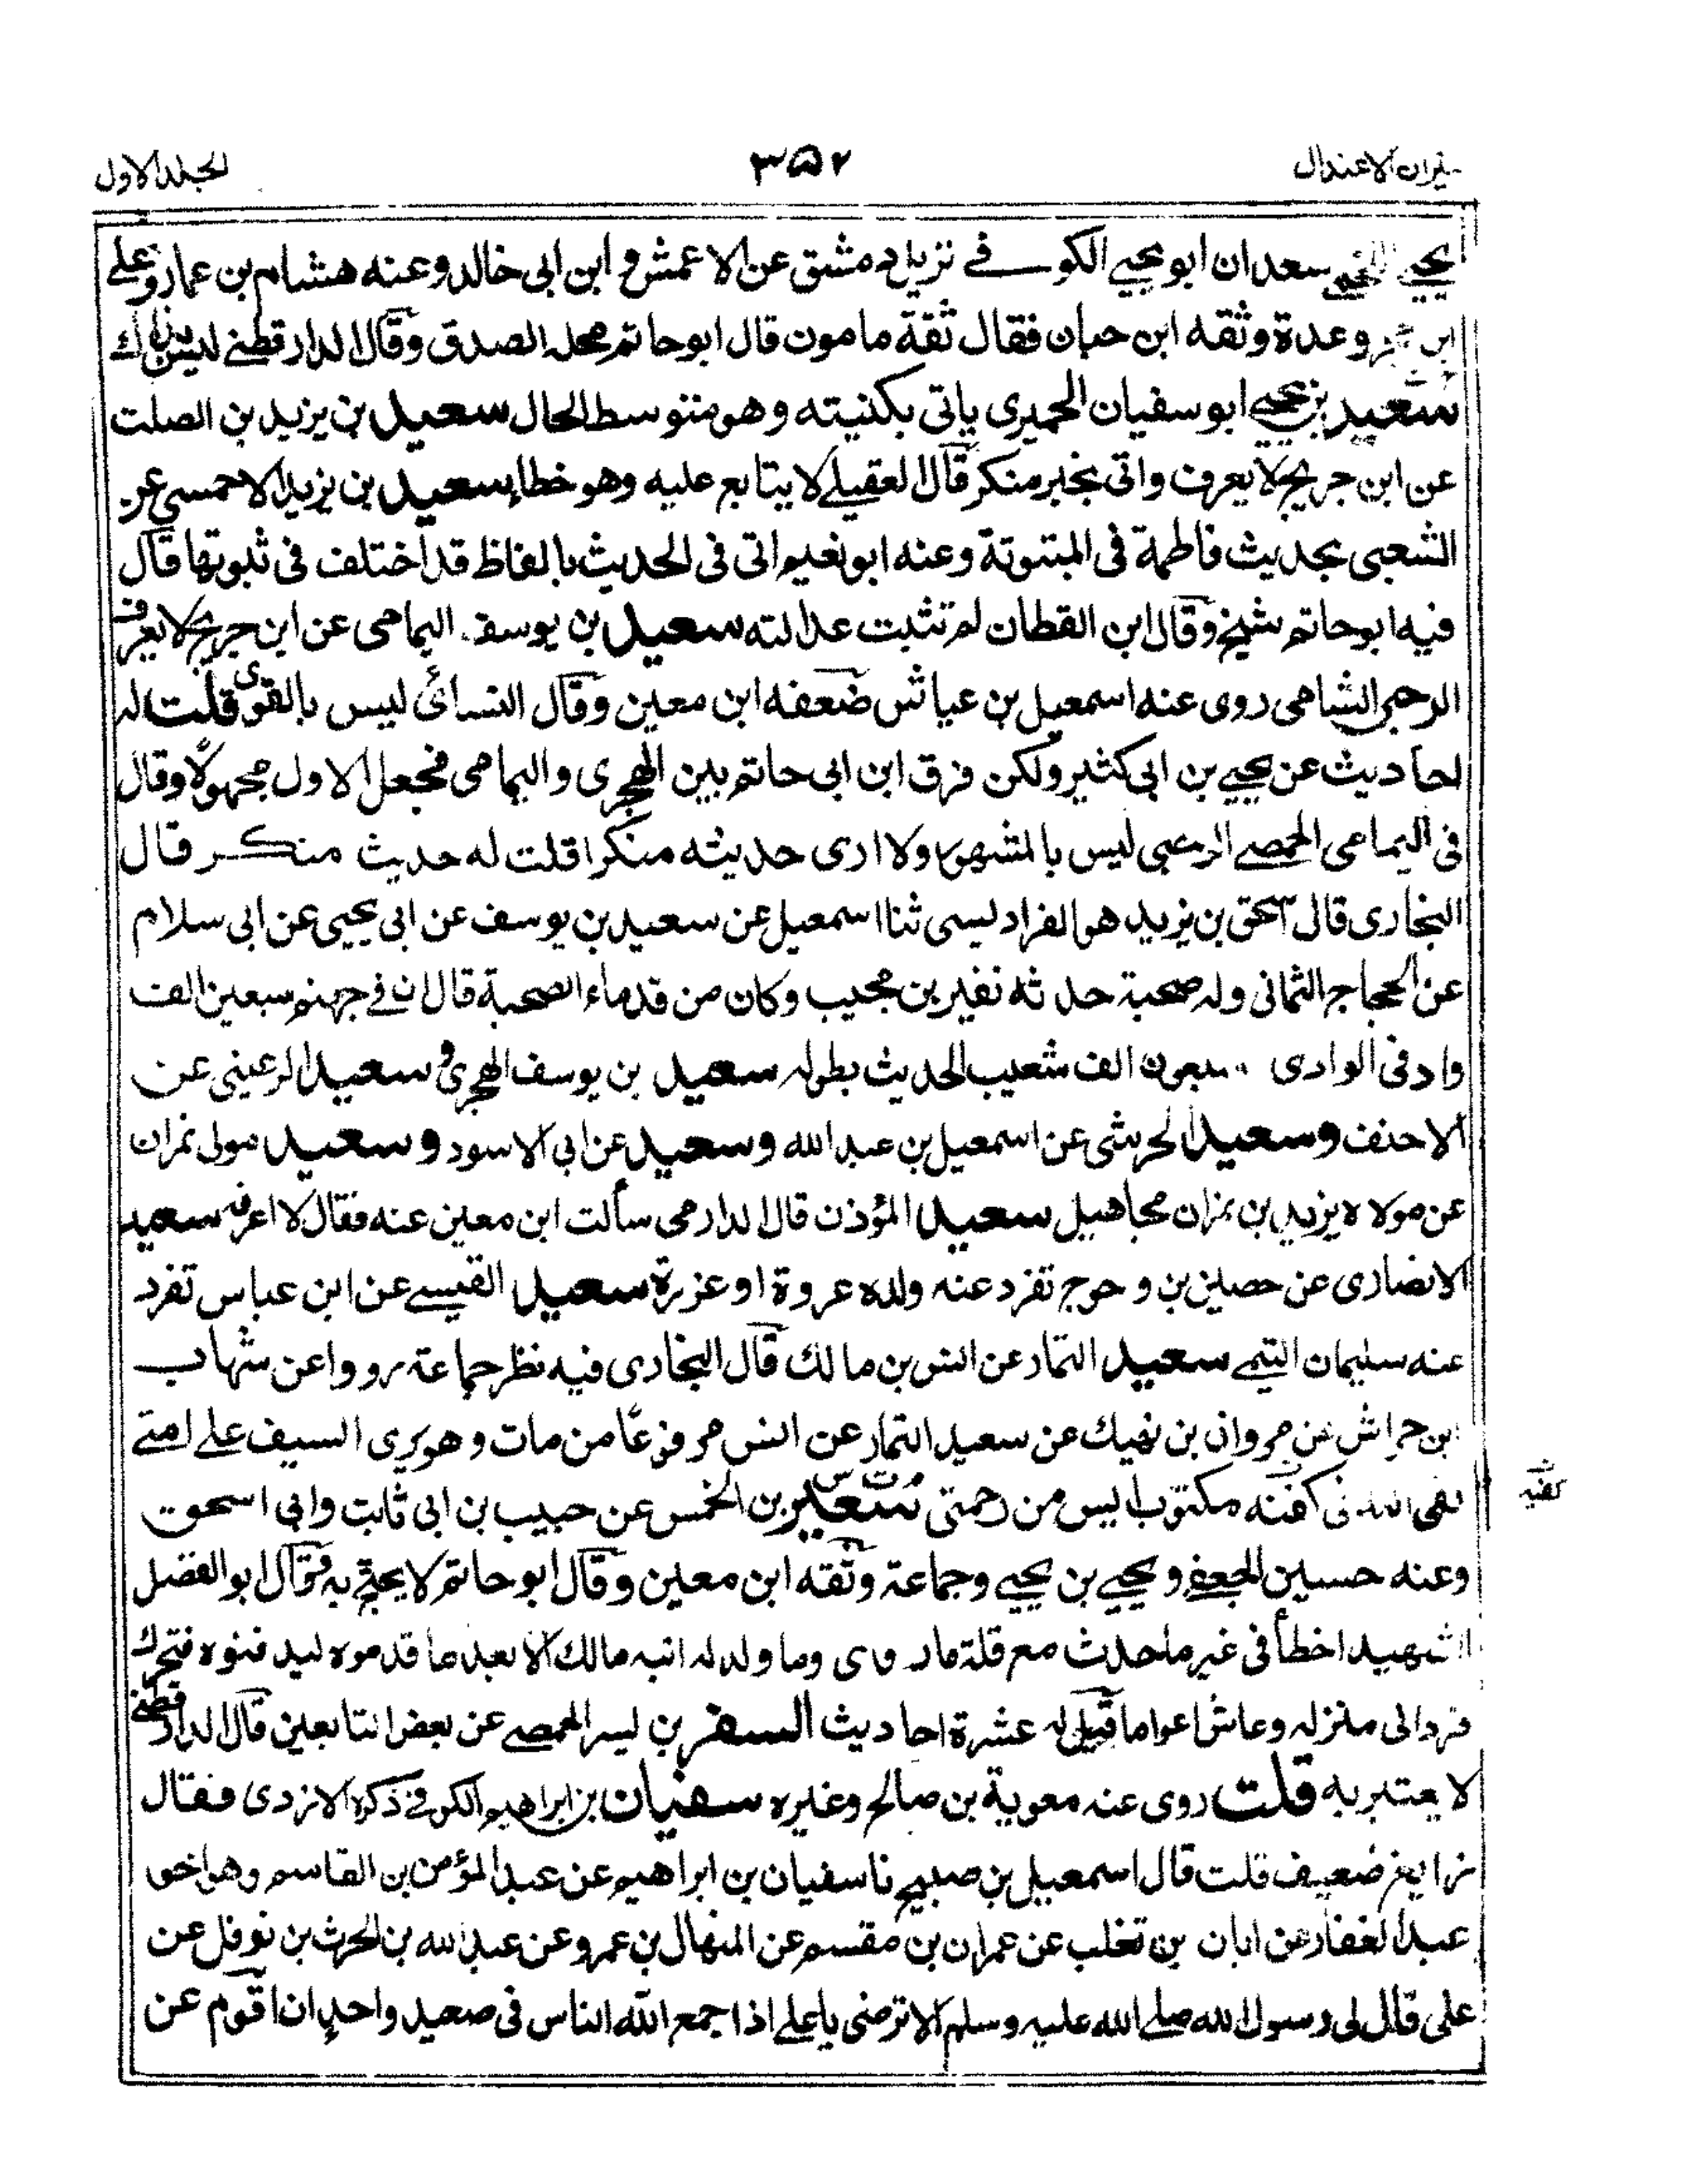 ميزان الاعتدال
٣٥٢
الجلد الاول
يحيى سعدان ابو يحيى الكوفے نزيل دمشق عن الاعمش و ابن ابى خالد وعنه هشام بن عمار وعلے
ابن وعدة وثقه ابن حبان فقال ثقة مامون قال ابوحاتم محله الصدق وقال الدارقطنے ليس بذاك
سعيد بن يحيے ابو سفيان الحميرى ياتى بكنيته وهو متوسط الحال سعيد بن يزيد بن الصلت
عن ابن جريج لا يعرف واتى بخبر منكر قال العقيلے لا يتابع عليه وهو خطا سعيد بن يزيد الاحمسي عن
الشعبى بحديث فاطمة فى المبتوتة وعنه ابو نعيم اتى فى الحديث بالفاظ قد اختلف فى ثبوتها قال
فيه ابوحاتم شيخ وقال ابن القطان لم تثبت عدالته سعيد بن يوسف اليمامى عن ابن جريج لا يعرف
الرحبى الشامى روى عنه اسمعيل بن عياش ضعفه ابن معين وقال النسائى ليس بالقوى قلت له
احاديث عن يحيے بن ابى كثير ولكن فرق ابن ابى حاتم بين الهجرى واليمامى فجعل الاول مجهولًا وقال
فى اليمامى الحمصے الرعبى ليس بالمشهور ولا ارى حديثه منكرا قلت له حديث منكر قال
البخارى قال اسحق بن يزيد هو الفراديسى ثنا اسمعيل عن سعيد بن يوسف عن ابى يحيى عن ابى سلام
عن الحجاج الثمانى وله صحبة حدثه نفير بن مجيب وكان من قدماء الصحبة قال ان فے جهنم سبعين الف
واد فى الوادى سبعون الف شعيب الحديث بطوله سعيد بن يوسف الهجرى و سعيد الرعينى عن
الاحنف وسعيد الحريثى عن اسمعيل بن عبد الله وسعيد عن ابى الاسود و سعيد مولى نمران
عن مولاه يزيد بن نمران مجاهيل سعيد المؤذن قال الدارمى سألت ابن معين عنه فقال لا اعرفه سعيد
الانصارى عن حصين بن وحوح تفرد عنه ولده عروة او عزرة سعيد القيسے عن ابن عباس تفرد
عنه سليمان التيمے سعيد التمار عن انس بن مالك قال البخارى فيه نظر جماعة رووا عن شهاب
ابن خراش عن مروان بن نهيك عن سعيد التمار عن انس مرفوعًا من مات وهو يرى السيف علے امتے
لقى الله فى كفنه مكتوب ايس من رحمتى سعير بن الخمس عن حبيب بن ابى ثابت وابى اسحق
كفيه
وعنه حسين الجعفے و يحيے بن يحيے وجماعة وثقه ابن معين وقال ابو حاتم لا يحتج به قال ابو الفضل
الشهيد اخطأ فى غير ما حديث مع قلة ما روى وما ولد له ابنه مالك الا بعد ما قدموه ليدفنوه فتحرك
فرد الى منزله وعاش اعواما قيل له عشرة احاديث السفر بن ليسر الحمصے عن بعض التابعين قال الدارقطنے
لا يعتبر به قلت روى عنه معوية بن صالح وغيره سفيان بن ابراهيم الكوفے ذكره الازدى فقال
زايغ ضعيف قلت قال اسمعيل بن صبيح نا سفيان بن ابراهيم عن عبد المؤمن بن القاسم وهو اخو
عبد الغفار عن ابان بن تغلب عن عمران بن مقسم عن المنهال بن عمرو عن عبد الله بن الحرث بن نوفل عن
على قال قال لى رسول الله صلے الله عليه وسلم الا ترضى يا علے اذا جمع الله الناس فى صعيد واحد ان اقوم عن